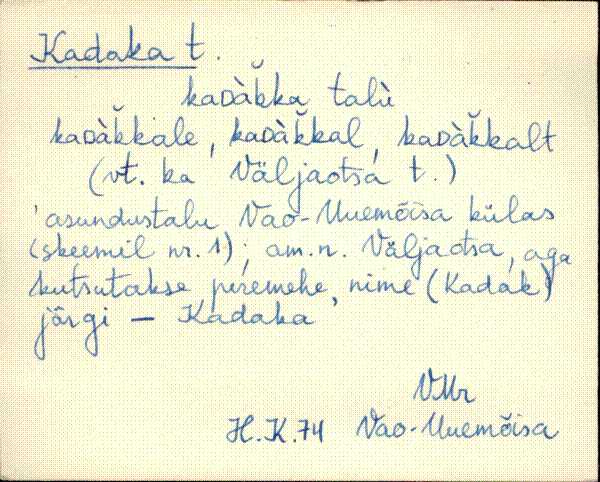 Kadaka t.
kaᴅàk̆ka talù
kaᴅàk̆kale, kaᴅàk̆kal, kaᴅàk̆kalt
(vt. ka Väljaotsa t.)
asundustalu Vao-Uuemõisa külas
(skeemil nr. 1); am.n. Väljaotsa, aga
kutsutakse peremehe nime (Kadak)
järgi — Kadaka
VMr
H.K.74 Vao-Uuemõisa